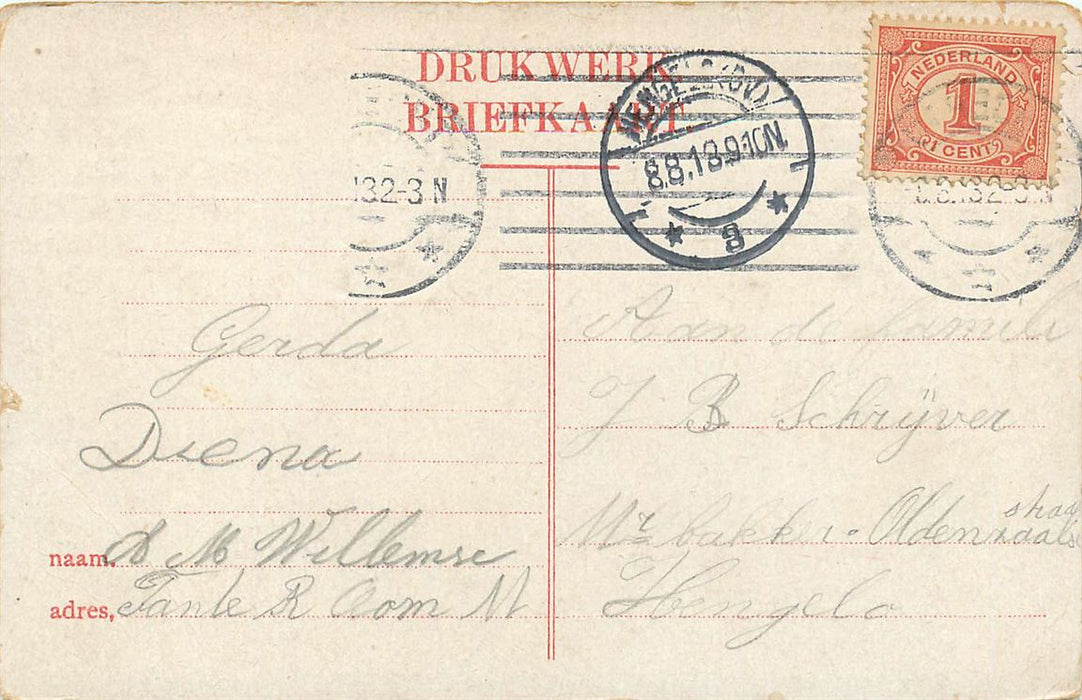 DRUKWERK.
BRIEFKAART.
NEDERLAND
1
1 CENT
HENGELO (OV)
8.8.13.9-10N
a
132-3 N
8.8.132-3 N
Gerda
Diena
naam, M Willemse
adres, Tante R Oom M
Aan de famili
J B Schrijver
Mr bakker. Oldenzaalse
straa
Hengelo